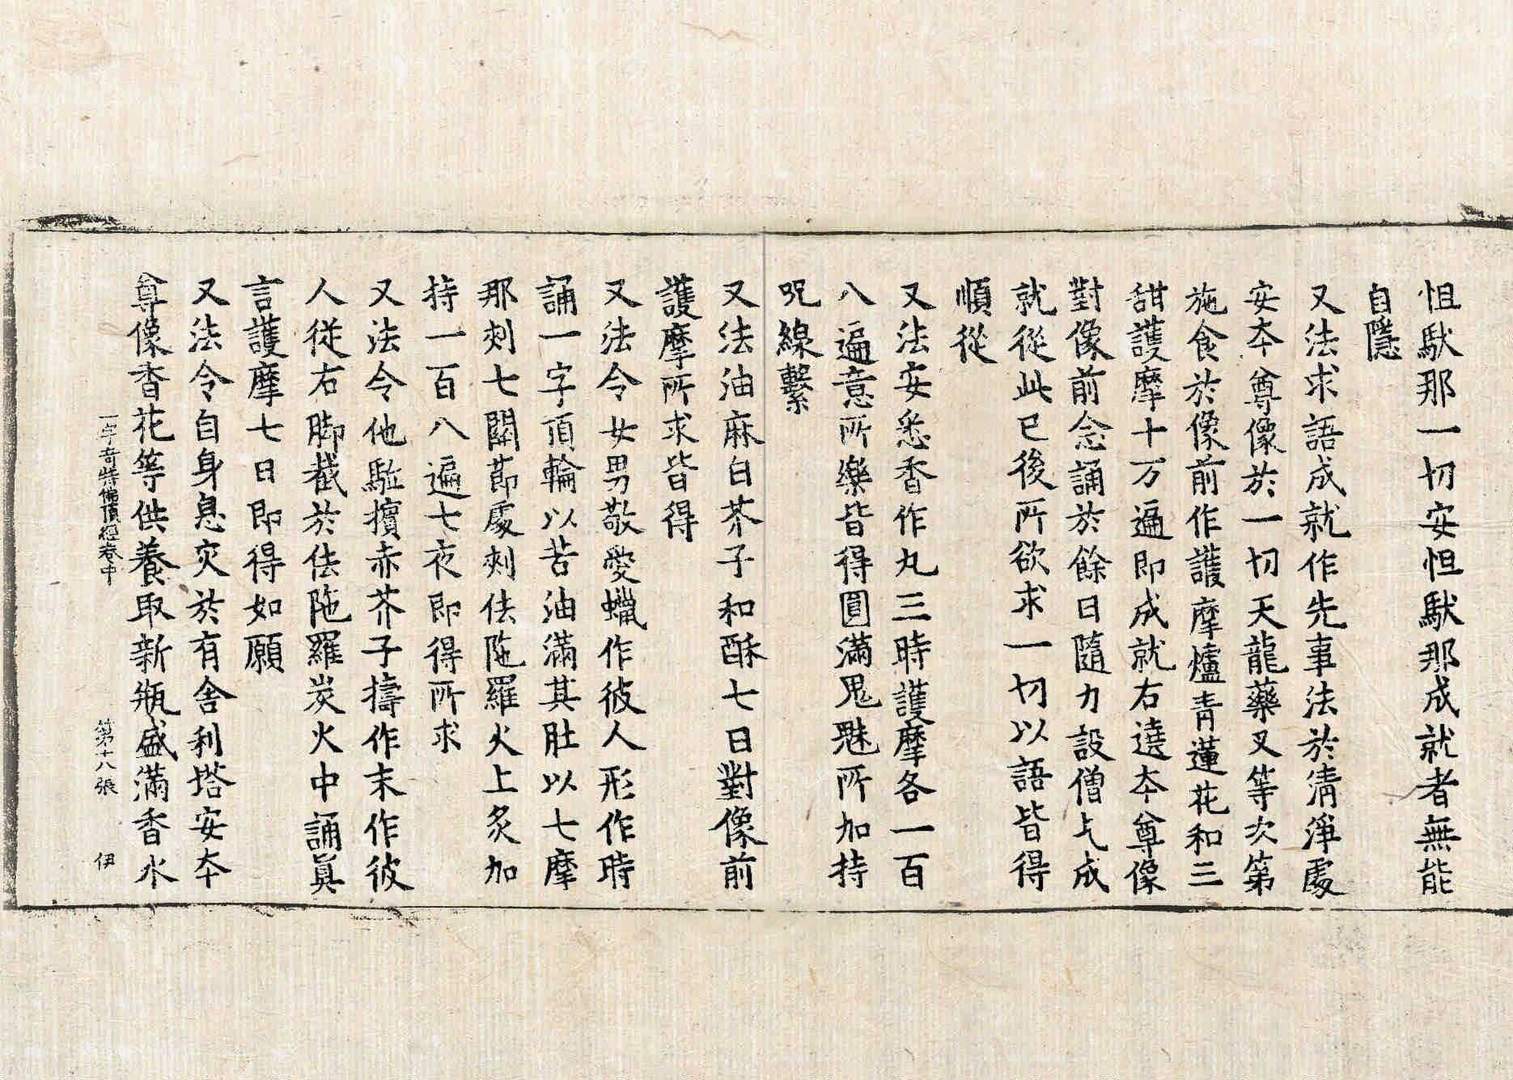 怛馱那一切安怛馱那成就者無能
自隱
又法求語成就作先事法於清淨處
安本尊像於一切天龍藥叉等次第
施食於像前作護摩爐青蓮花和三
甜護摩十万遍即成就右遶本尊像
對像前念誦於餘日隨力設僧乞成
就從此已後所欲求一切以語皆得
順從
又法安悉香作丸三時護摩各一百
八遍意所樂皆得圓滿鬼魅所加持
呪線繫
又法油麻白芥子和酥七日對像前
護摩所求皆得
又法令女男敬愛蠟作彼人形作時
誦一字頂輪以苦油滿其肚以七摩
那刺七關節處刺佉陁羅火上炙加
持一百八遍七夜即得所求
又法令他駈擯赤芥子擣作末作彼
人從右脚截於佉陁羅炭火中誦眞
言護摩七日即得如願
又法令自身息灾於有舍利塔安本
尊像香花等供養取新瓶盛滿香水
一字奇特佛頂經卷中 第十八張 伊